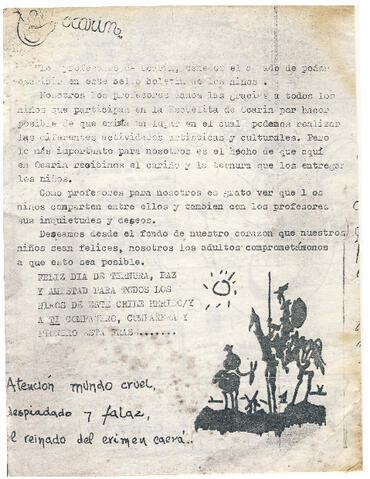 ocarin
Los profesores de Ocarin, tenemos el agrado de poder
escribir en este bello boletin de los niños .
Nosotros los profesores damos las gracias a todos los
niños que participan en la Escuelita de Ocarin por hacer
posible de que exista un lugar en el cual podemos realizar
las diferentes actividades artisticas y culturales. Pero
lo más importante para nosotros es el hecho de que aquí
en Ocarin recibimos el cariño y la ternura que los entregan
los niños.
Como profesores para nosotros es grato ver que los
niños comparten entre ellos y tambien con los profesores
sus inquietudes y deseos.
Deseamos desde el fondo de nuestro corazon que nuestros
niños sean felices, nosotros los adultos comprometámonos
a que esto sea posible.
FELIZ DIA DE TERNURA, PAZ
Y AMISTAD PARA TODOS LOS
HIJOS DE ESTE CHILE HERIDO/Y
A TU COMPAÑERO, COMPAÑERA Y
ESTA FRAS.......
Atención mundo cruel,
despiadado y falaz,
el reinado del crimen caerá..